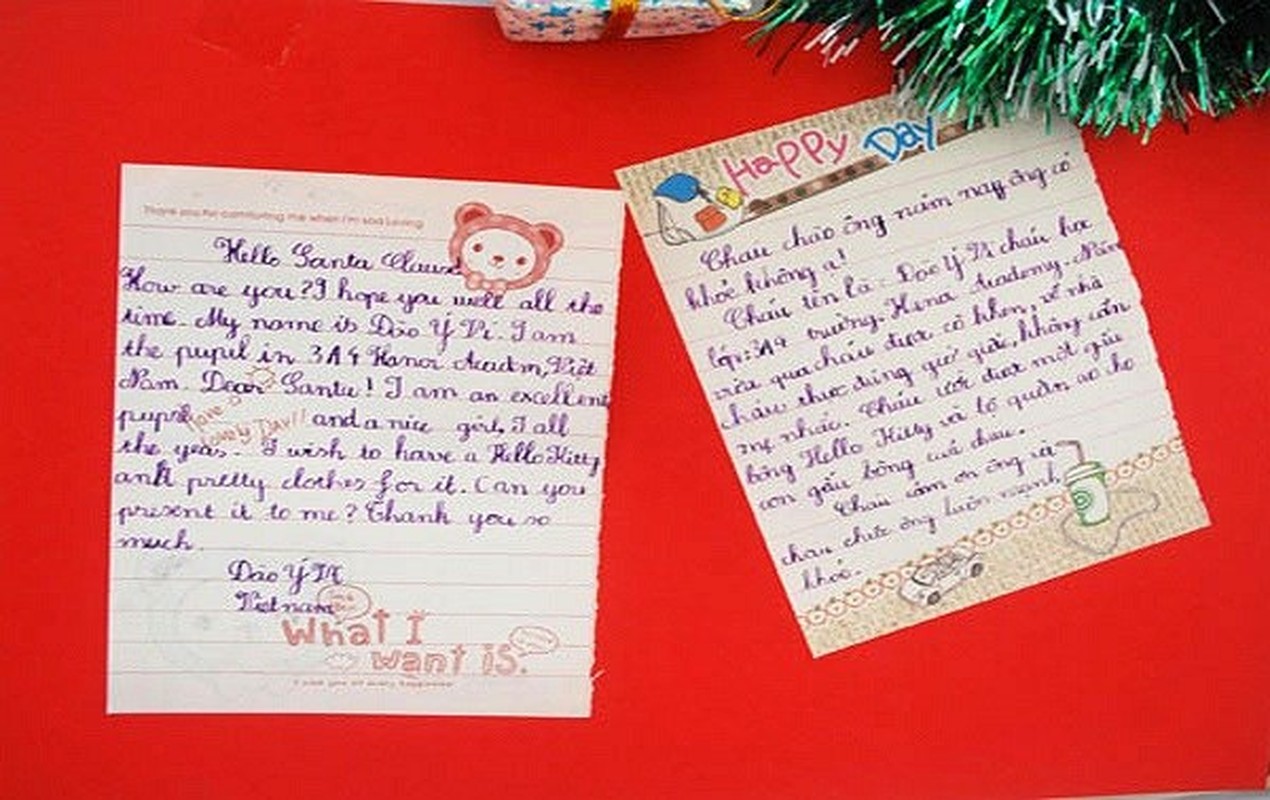 Thank you for comforting me when I'm sad Loving
Hello Santa Clause
How are you? I hope you well all the
time. My name is Đào Ý Vi. I am
the pupil in 3A4 Hanoi Academ, Việt
Nam. Dear Santa! I am an excellent
pupil and a nice girl. I all
Have a
lovely Day!!
the year. I wish to have a Hello Kitty
and pretty clothes for it. Can you
present it to me? Thank you so
much.
Đào Ý Vi
Vietnam
What I
want is.
Happy Day
Cháu chào ông năm nay ông có
khỏe không ạ!
Cháu tên là: Đào Ý Vi cháu học
lớp: 3A9 trường. Hanoi Academy. Năm
vừa qua cháu được cô khen, về nhà
cháu thức đúng giờ giấc, không cần
mẹ nhắc. Cháu ước được một gấu
bông Hello Kitty và tủ quần áo cho
con gấu bông của cháu.
Cháu cảm ơn ông và
cháu chúc ông luôn mạnh
khỏe.